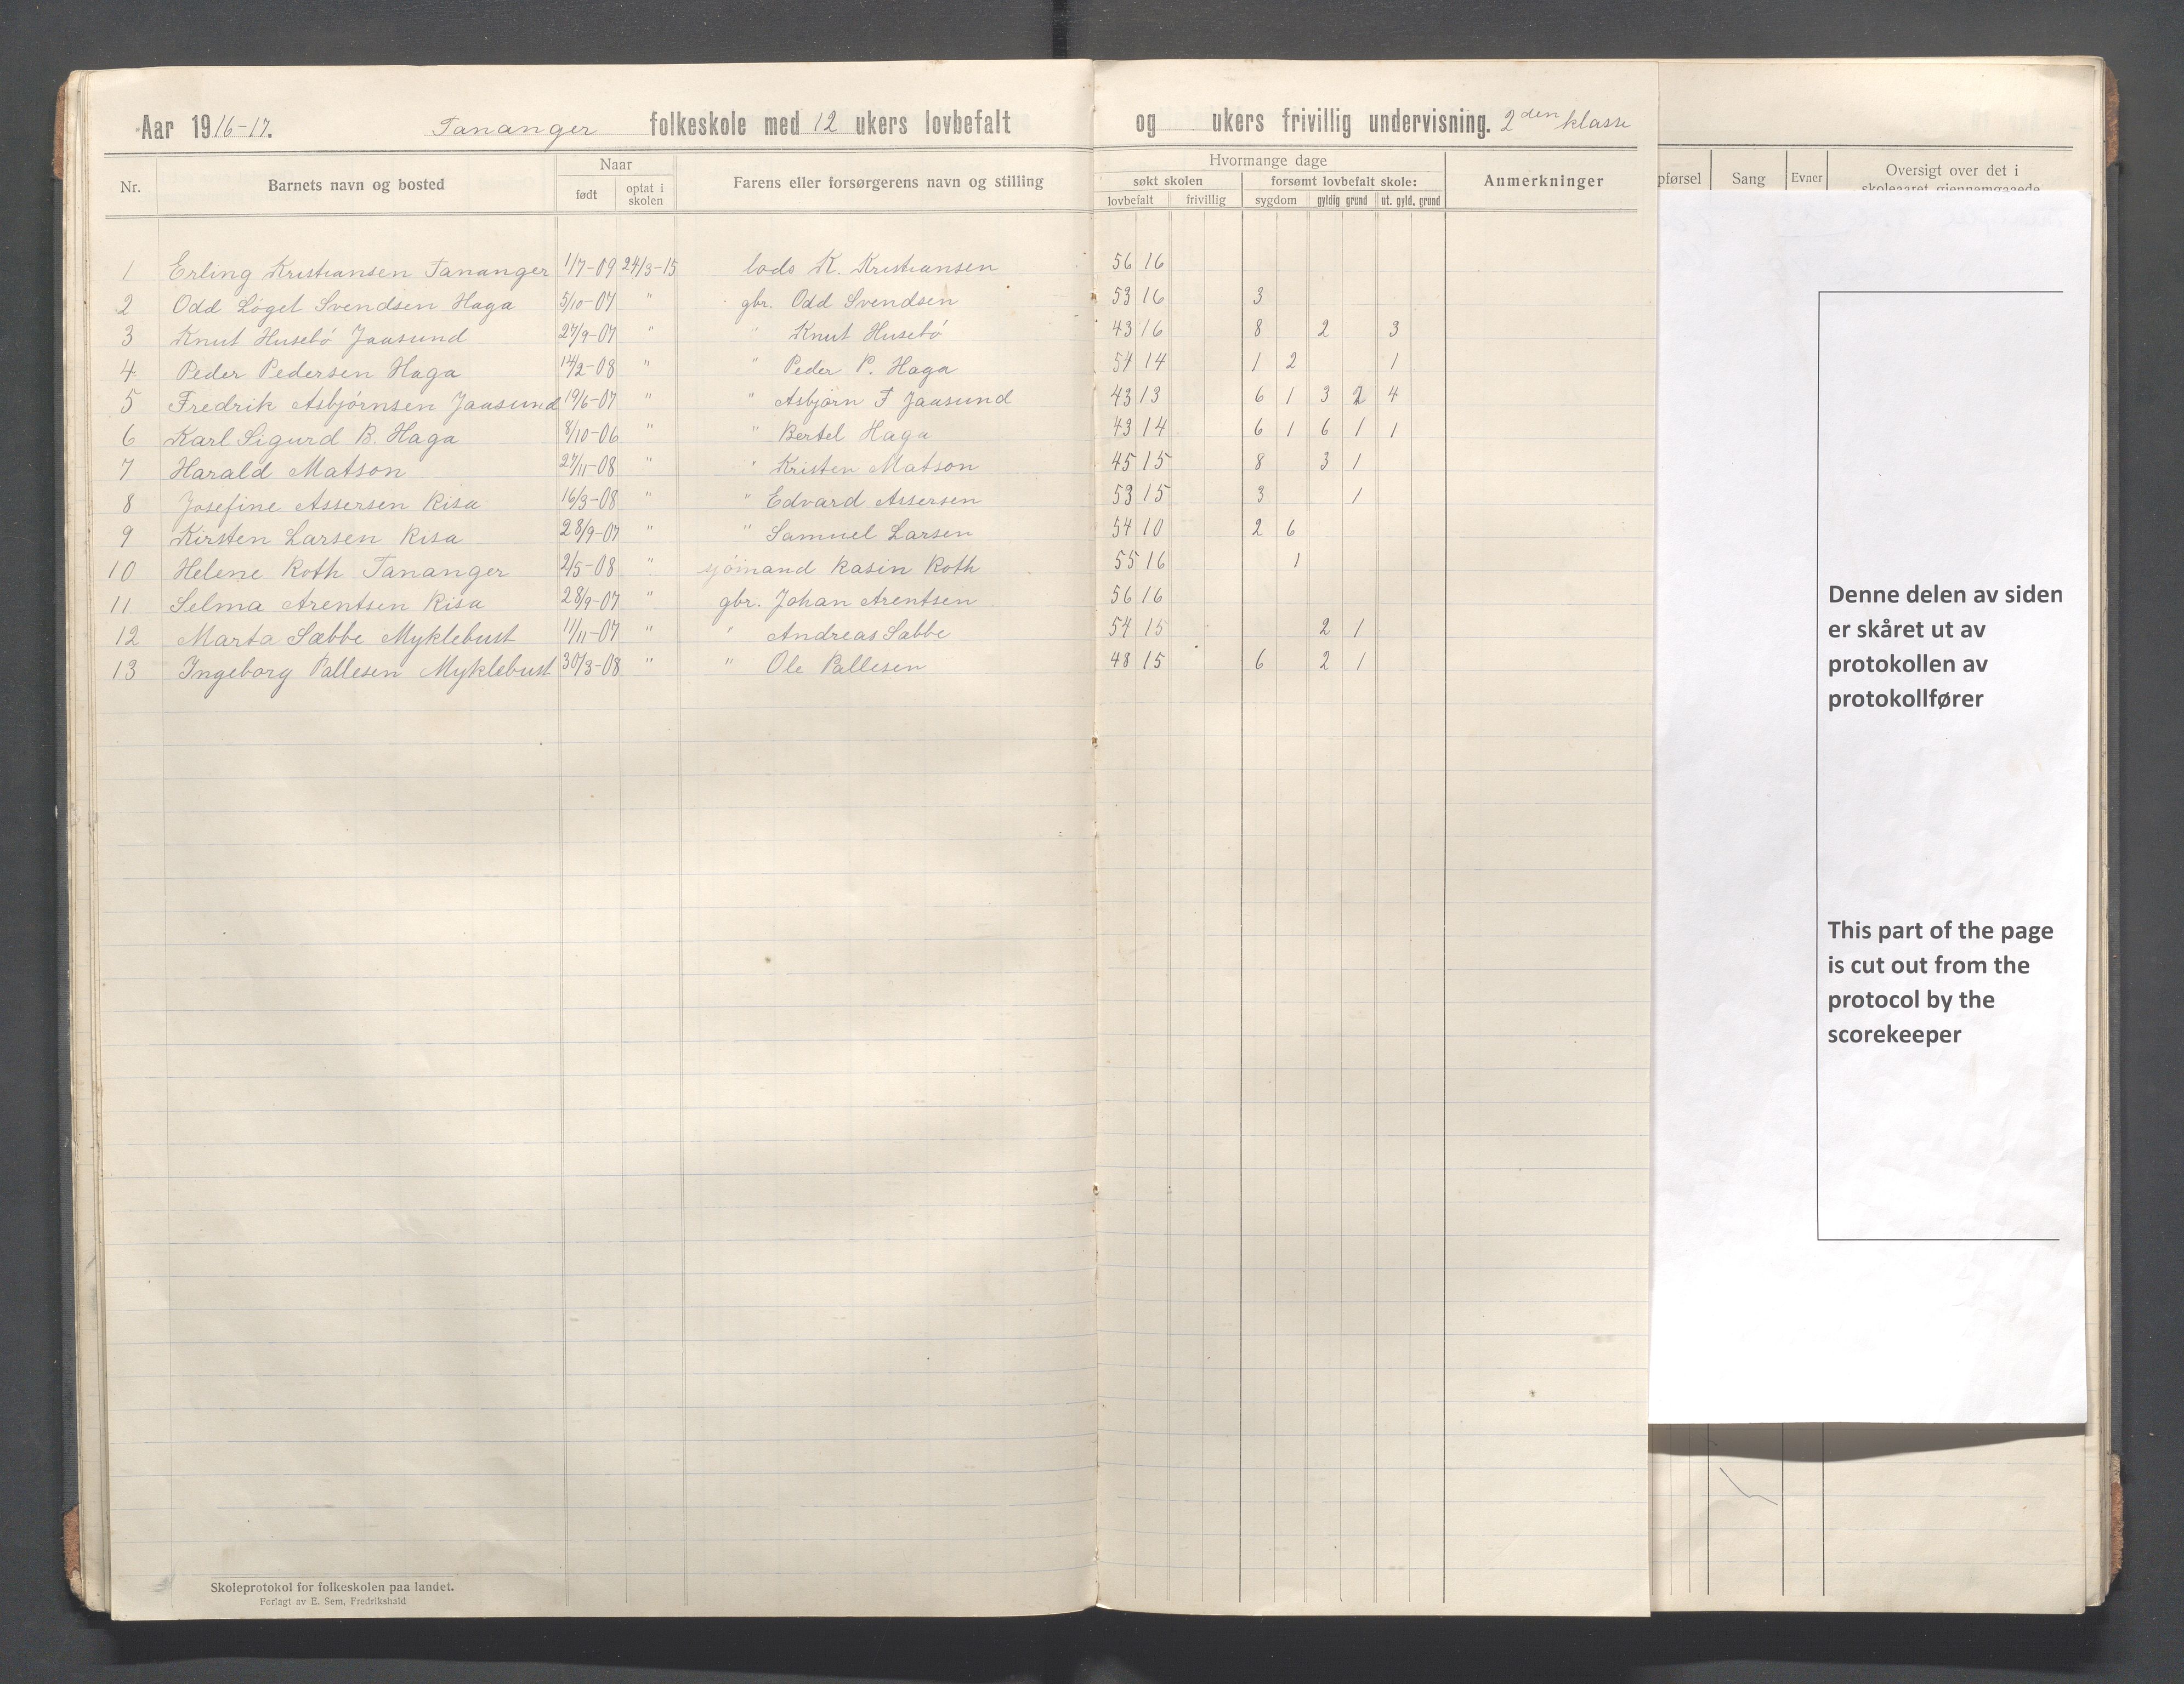 Aar 1916-17. Tananger folkeskole med 12 ukers lovbefalt og ukers frivillig undervisning. 2den klasse
Nr. Barnets navn og bosted Naar født optat i skolen Farens eller forsørgerens navn og stilling Hvormange dage søkt skolen lovbefalt frivillig forsømt lovbefalt skole: sygdom gyldig grund ut. gyld. grund Anmerkninger
pførsel Sang Evner Oversigt over det i
skoleaaret gjennemgaaede
1 Erling Kristiansen Tananger 1/7-09 24/3-15 lods K. Kristiansen 56 16
2 Odd Løget Svendsen Haga 5/10-07 " gbr. Odd Svendsen 53 16 3
3 Knut Husebø Jaasund 27/9-07 " " Knut Husebø 43 16 8 2 3
4 Peder Pedersen Haga 14/2-08 " " Peder P. Haga 54 14 1 2 1
5 Fredrik Asbjørnsen Jaasund 19/6-07 " " Asbjørn F Jaasund 43 13 6 1 3 2 4
6 Karl Sigurd B. Haga 8/10-06 " " Bertel Haga 43 14 6 1 6 1 1
7 Harald Matson 27/11-08 " " Kristen Matson 45 15 8 3 1
8 Josefine Assersen Risa 16/3-08 " " Edvard Assersen 53 15 3 1
9 Kirsten Larsen Risa 28/9-07 " " Samuel Larsen 54 10 2 6
10 Helene Roth Tananger 2/5-08 " sjømand Rasin Roth 55 16 1
11 Selma Arentsen Risa 28/9-07 " gbr. Johan Arentsen 56 16
12 Marta Sæbbe Myklebust 11/11-07 " " Andreas Sæbbe 54 15 2 1
13 Ingeborg Pallesen Myklebust 30/3-08 " " Ole Pallesen 48 15 6 2 1
Denne delen av siden
er skåret ut av
protokollen av
protokollfører
This part of the page
is cut out from the
protocol by the
scorekeeper
Skoleprotokol for folkeskolen paa landet.
Forlagt av E. Sem, Fredrikshald